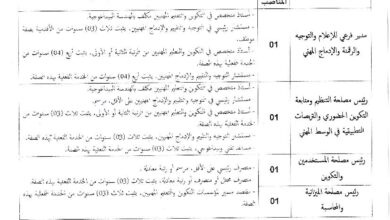 المناصب
- أستاذ متخصص في التكوين والتعليم المهنيين مكلف بالهندسة البيداغوجية.
- مستشار رئيسي في التوجيه والتقييم والإدماج المهنيين، يثبت ثلاث (03) سنوات من الأقدمية بصفة موظف.
مدير فرعي للإعلام والتوجيه والرقمنة والإدماج المهني
01
- أستاذ متخصص في التكوين والتعليم المهنيين من الرتبة الثانية أو الأولى، يثبت أربع (04) سنوات من الخدمة الفعلية بهذه الصفة.
- مستشار التوجيه والتقييم والإدماج المهنيين، يثبت أربع (04) سنوات من الخدمة الفعلية بهذه الصفة.
رئيس مصلحة التنظيم ومتابعة التكوين الحضوري والتربصات التطبيقية في الوسط المهني
01
- مستشار رئيسي في التوجيه والتقييم والإدماج المهنيين، على الأقل، مرسم.
- أستاذ متخصص في التكوين والتعليم المهنيين من الرتبة الثانية أو الأولى، يثبت ثلاث (03) سنوات من الخدمة الفعلية بهذه الصفة.
- مستشار التوجيه والتقييم والإدماج المهنيين، يثبت ثلاث (03) سنوات من الخدمة الفعلية بهذه الصفة.
رئيس مصلحة المستخدمين والتكوين
01
- متصرف رئيسي على الأقل، مرسم أو رتبة معادلة.
- متصرف محلل أو متصرف أو رتبة معادلة، يثبت ثلاث (03) سنوات من الخدمة الفعلية بهذه الصفة.
رئيس مصلحة الميزانية والمحاسبة
01
- مقتصد مسير لمؤسسات التكوين والتعليم المهنيين، يثبت ثلاث (03) سنوات من الخدمة الفعلية بهذه الصفة.